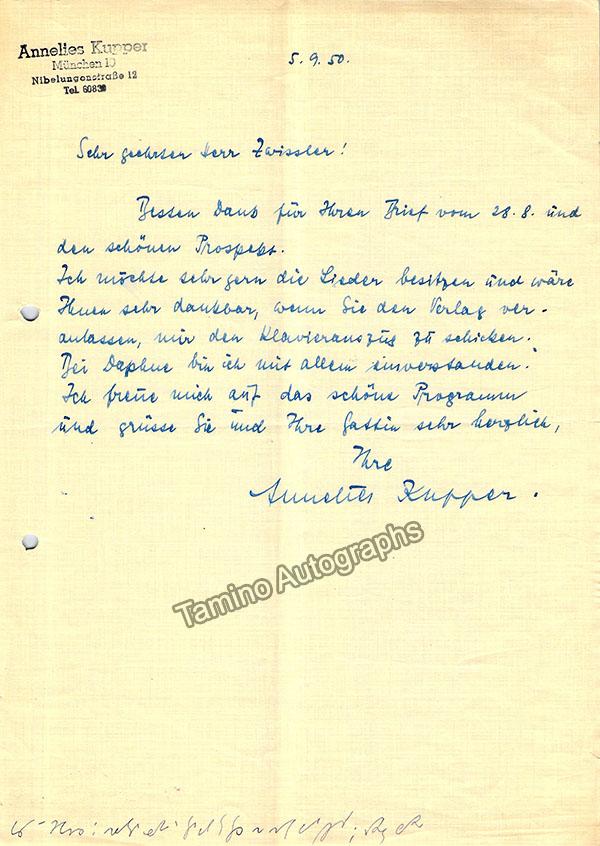 Annelies Kupper
München 19
Nibelungenstraße 12
Tel. 60830
5.9.50.
Sehr geehrter Herr Zwissler!
Besten Dank für Ihren Brief vom 28.8. und
den schönen Prospekt.
Ich möchte sehr gern die Lieder besitzen und wäre
Ihnen sehr dankbar, wenn Sie den Verlag ver-
anlassen, mir den Klavierauszug zu schicken.
Bei Daphne bin ich mit allem einverstanden.
Ich freue mich auf das schöne Programm
und grüsse Sie und Ihre Gattin sehr herzlich,
Ihre
Annelies Kupper.
Tamino Autographs